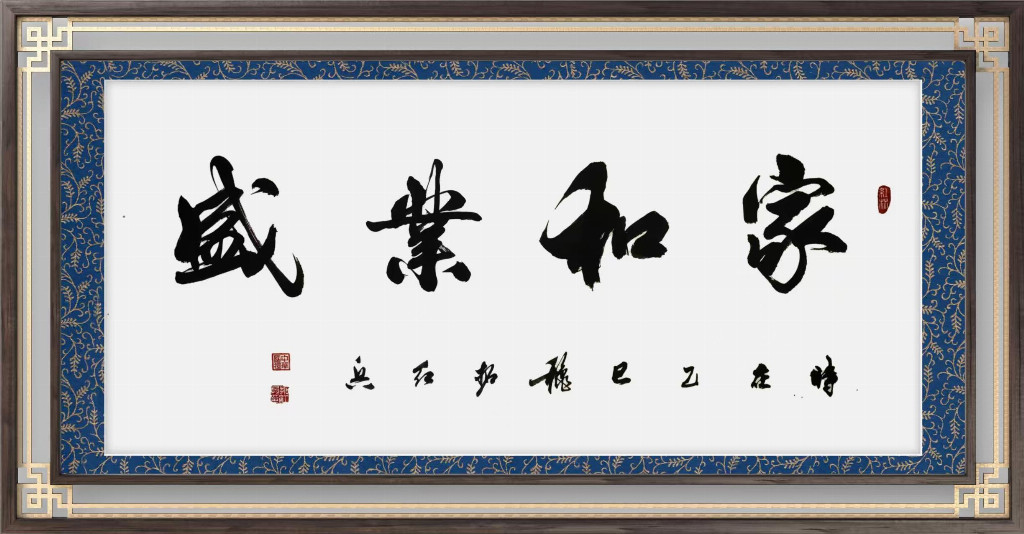 家和業盛
時在乙巳龝红兵